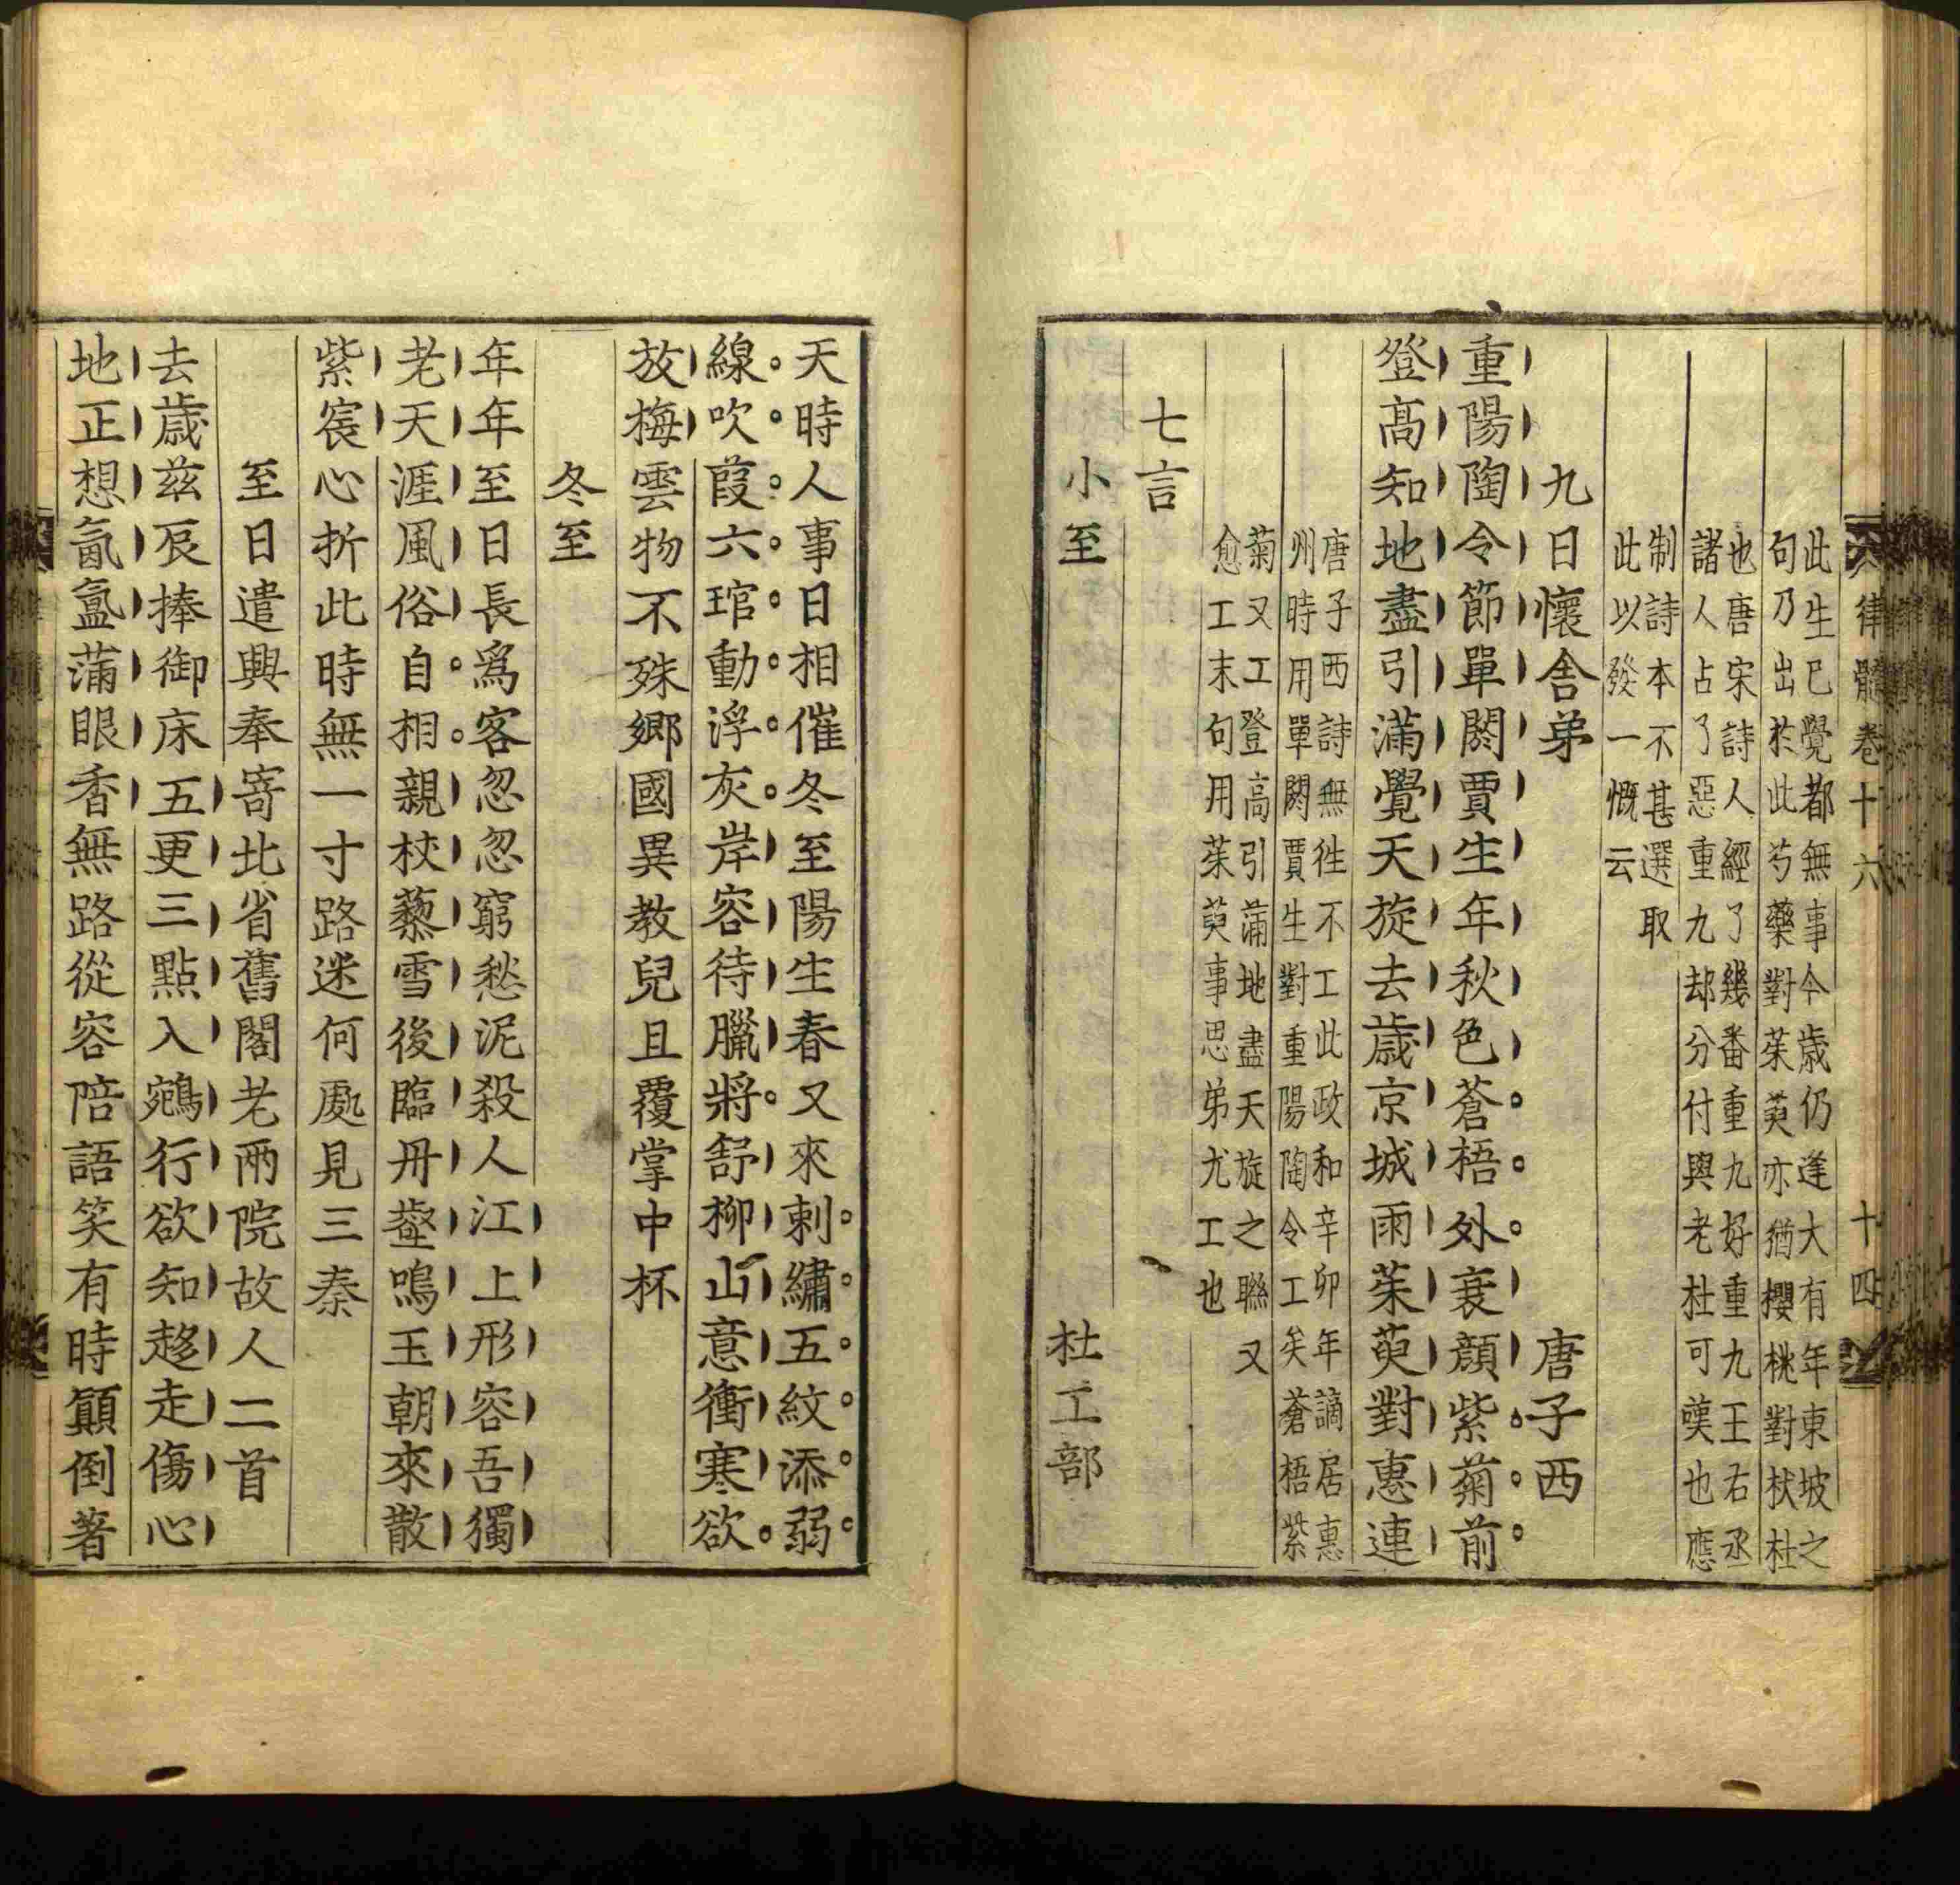 律髓卷十六 十四
此生已覺都無事今歳仍逢大有年東坡之
句乃出於此芍藥對茱萸亦猶櫻桃對杕杜
也唐宋詩人經了幾番重九好重九王右丞
諸人占了惡重九却分付與老杜可嘆也應
制詩本不甚選取
此以發一慨云
九日懷舎弟 唐子西
重陽陶令節單閼賈生年秋色蒼梧外衰顔紫菊前
登髙知地盡引滿覺天旋去歳京城雨茱萸對惠連
唐子西詩無徃不工此政和辛卯年謫居惠
州時用單閼賈生對重陽陶令工矣蒼梧紫
菊又工登高引蒲地盡天旋之聮又
愈工末句用茱萸事思弟尤工也
七言
小至 杜工部
天時人事日相催冬至陽生春又來刺繡五紋添弱
線吹葭六琯動浮灰岸容待臘將舒柳山意衝寒欲
放梅雲物不殊鄉國異教兒且覆掌中杯
冬至
年年至日長爲客忽忽窮愁泥殺人江上形容吾獨
老天涯風俗自相親杖藜雪後臨丹壑鳴玉朝來散
紫宸心折此時無一寸路迷何處見三秦
至日遣興奉寄北省舊閣老兩院故人二首
去歳兹辰捧御床五更三點入鵷行欲知趍走傷心
地正想氤氲蒲眼香無路從容陪語笑有時顛倒著